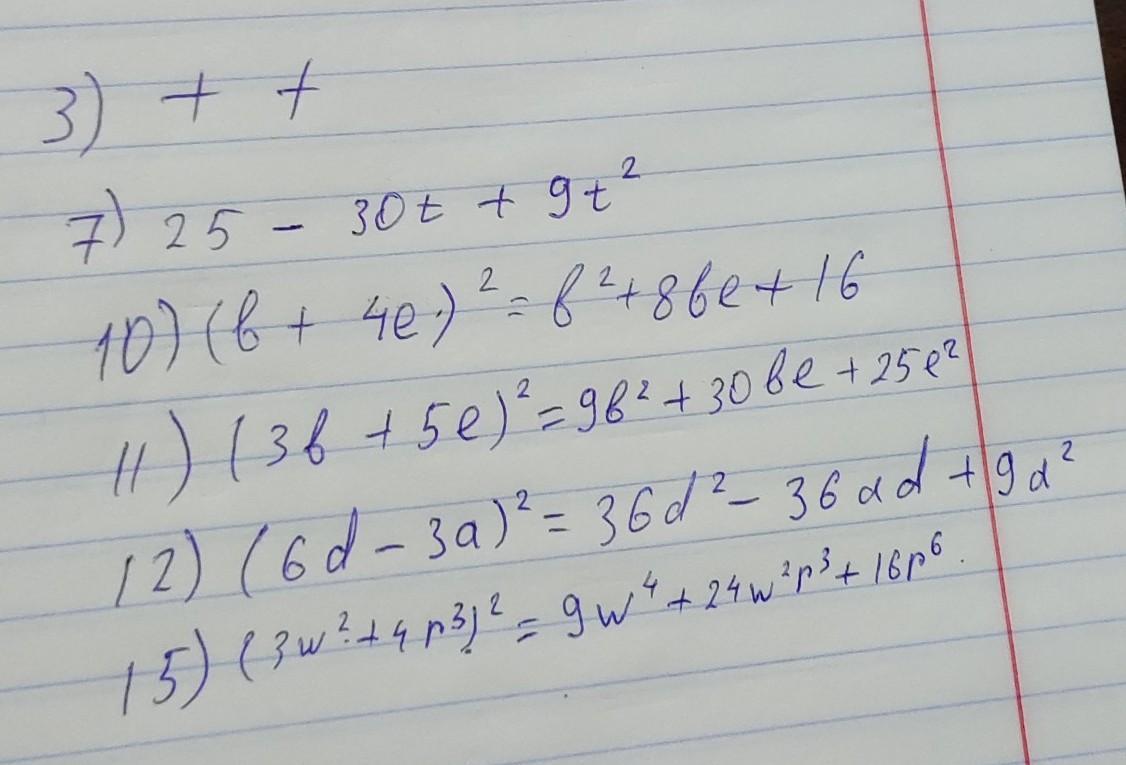 3) + +
7) 25 - 30t + 9t²
10) (b + 4e)² = b² + 8be + 16
11) (3b + 5e)² = 9b² + 30be + 25e²
12) (6d - 3a)² = 36d² - 36ad + 9a²
15) (3w² + 4p³)² = 9w⁴ + 24w²p³ + 16p⁶.